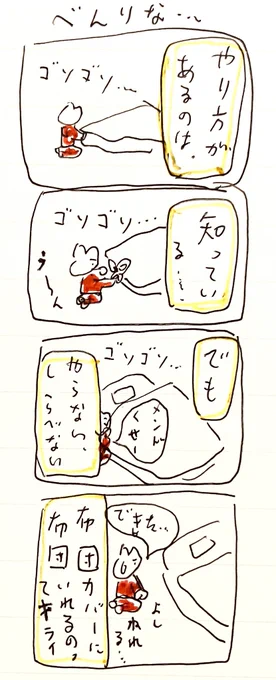 べんりな…
やり方が
あるのは、
ゴソゴソ…
知ってい
る…
ゴソゴソ…
うーん
でも
ゴソゴソ…
メンド
くせー
やらない、
しらべない
できた…
よし
ねれ
る…
布団カバーに
布団いれるの、
てキライ